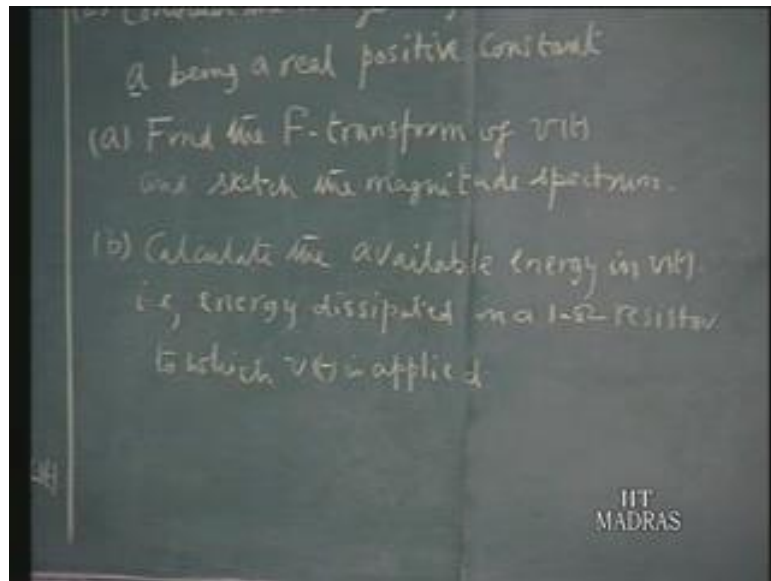 a being a real positive constant
(a) Find the F-transform of v(t)
and sketch the magnitude spectrum.
(b) Calculate the available energy in v(t).
i.e, energy dissipated in a 1-Ω resistor
to which v(t) is applied
IIT
MADRAS